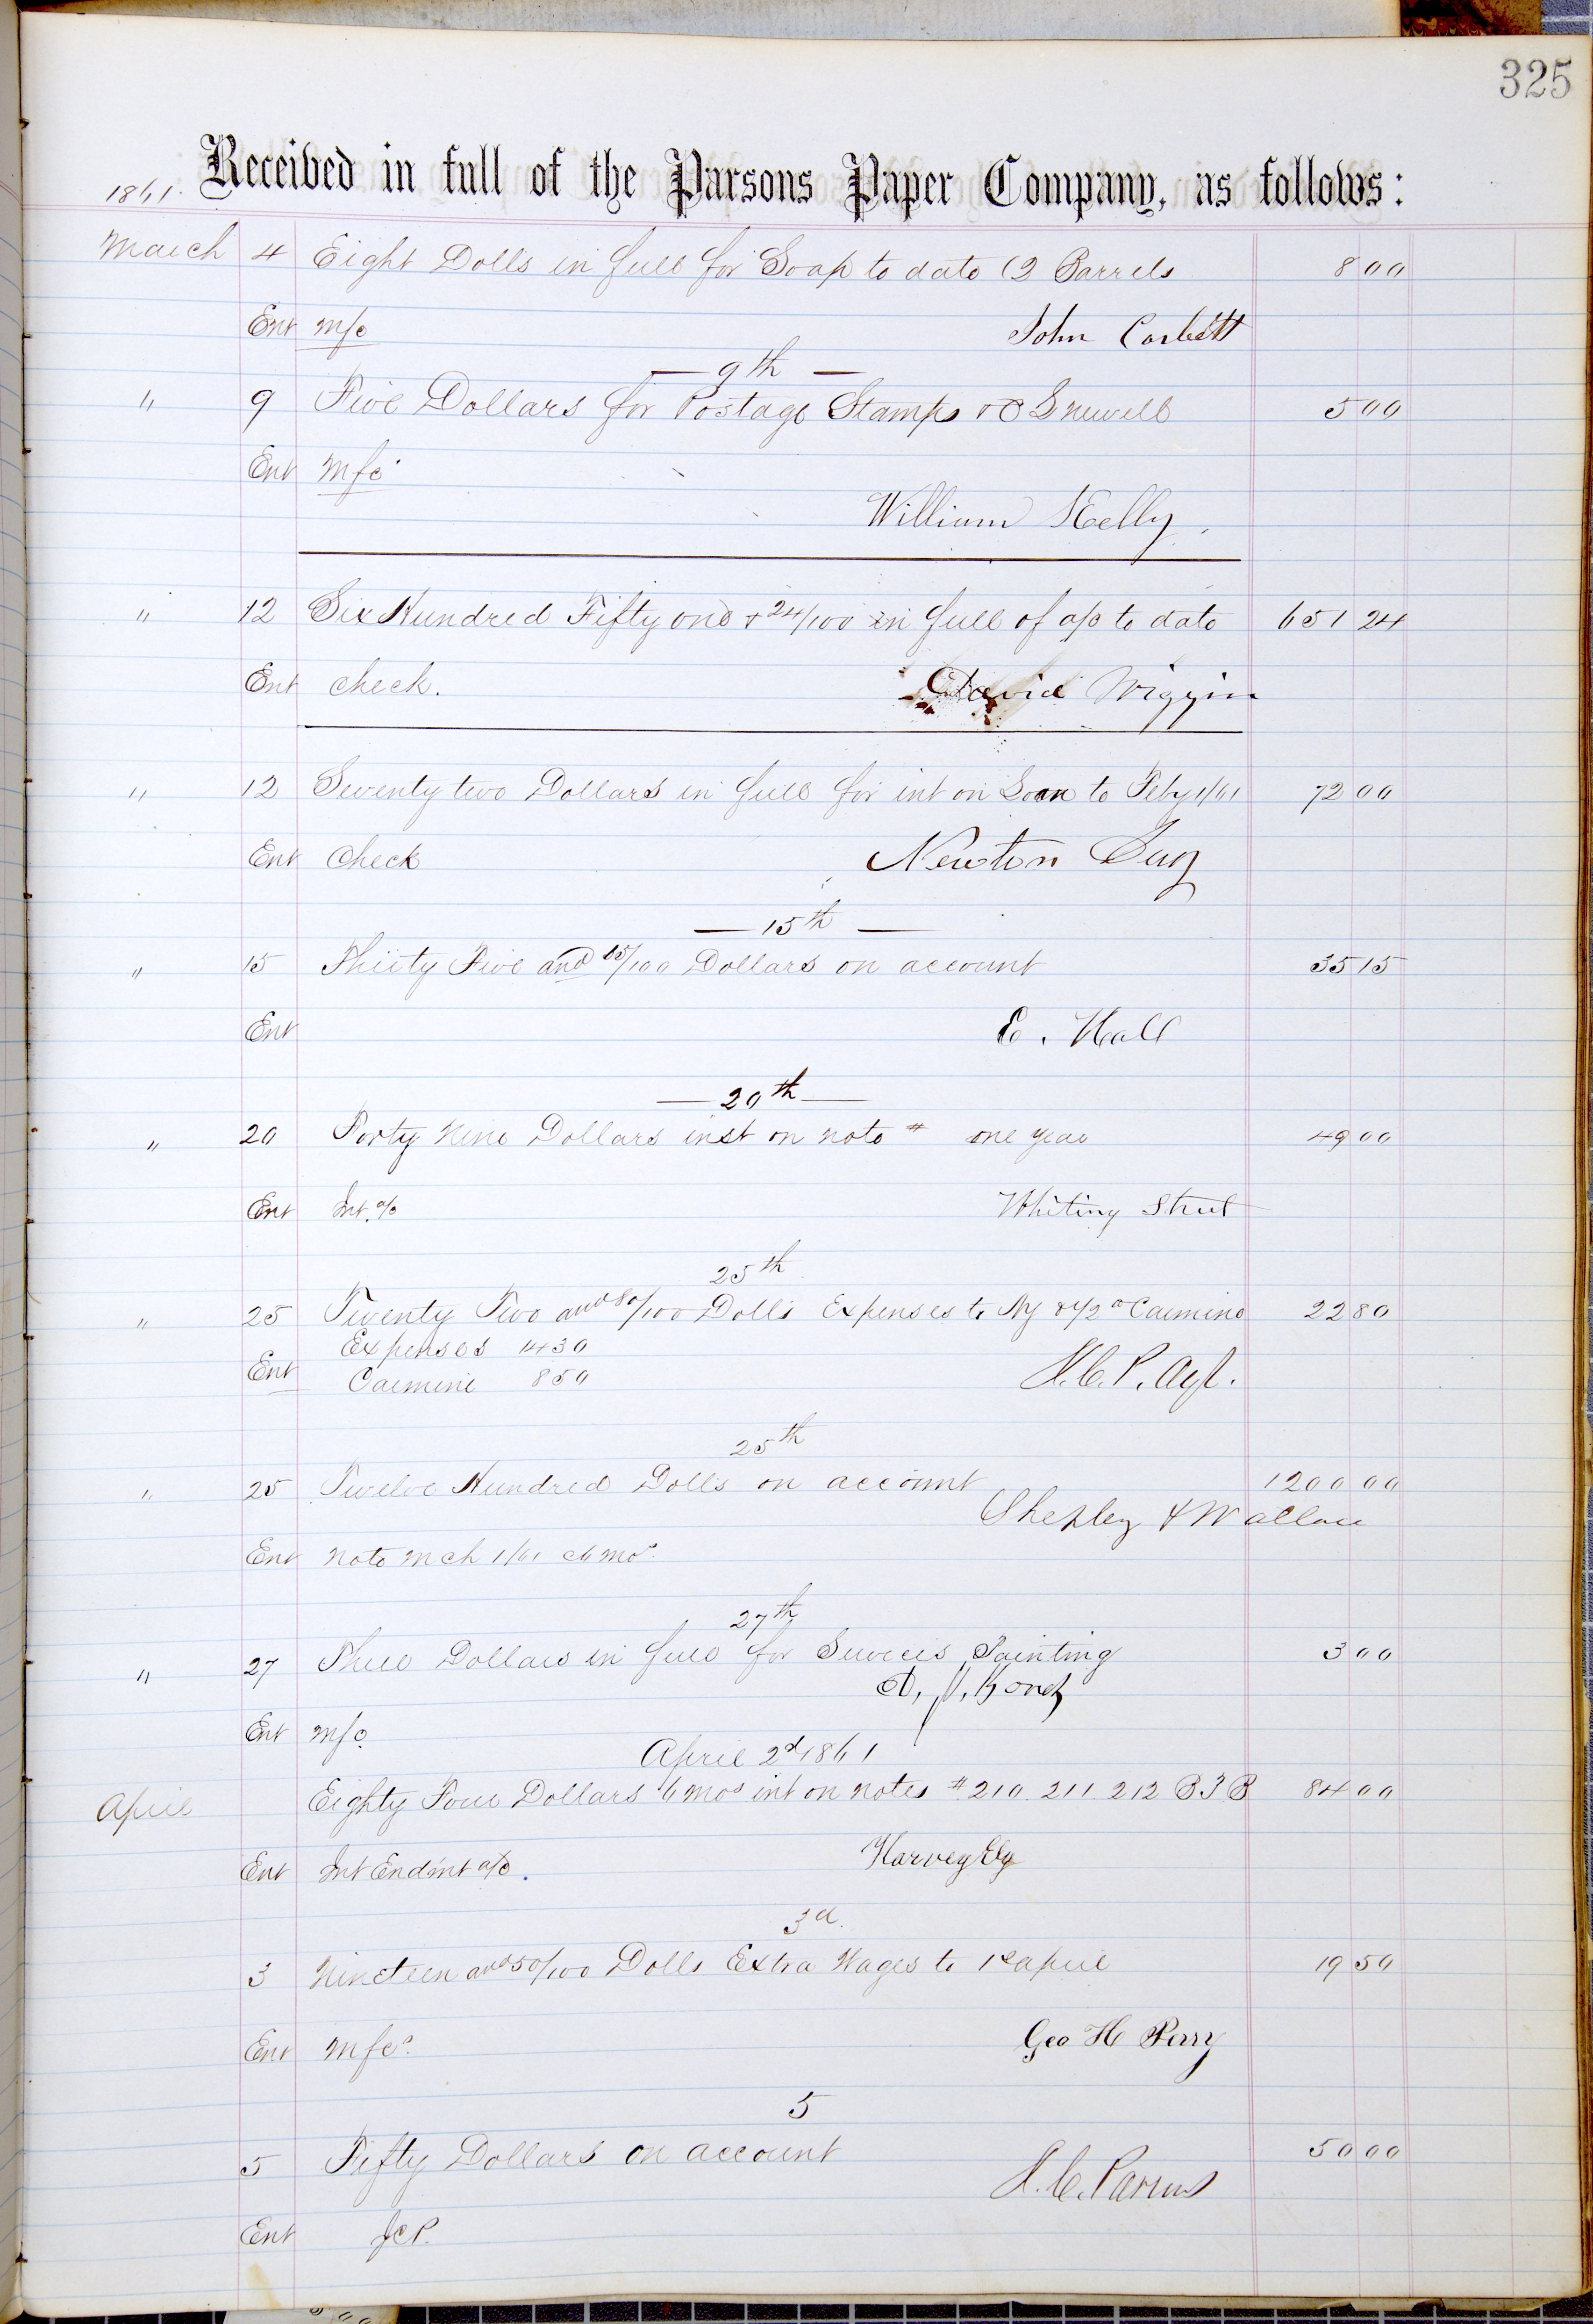 325
Received in full of the Parsons Paper Company, as follows:
1861
March 4 Eight Dolls in full for Soap to date (2 Barrels 8 00
Ent Mfc John Corbett
9th
" 9 Five Dollars for Postage Stamps 5 00
Ent Mfc
William Kelly
" 12 Six Hundred Fifty one & 24/100 in full of a/c to date 651 24
Ent check. David Wiggin
" 12 Seventy two Dollars in full for int on Loan to Feby 1/61 72 00
Ent Check Newton
15th
" 15 Thirty Five and 15/100 Dollars on account 35 15
Ent E. Hall
20th
" 20 Forty Nine Dollars inst on note # one year 49 00
Ent Int. a/c Whiting Street
25th
" 25 Twenty Two and 80/100 Dolls Expenses to NY & 1/2 Carmine 22 80
Expenses 14 30
Ent Carmine 8 50 J.C.P. Agt.
25th
" 25 Twelve Hundred Dolls on account 1200 00
Shepley & Wallace
Ent note Mch 1/61 6 mos
27th
" 27 Three Dollars in full for Services Painting 3 00
Ent Mfc
April 2d 1861
April Eighty Four Dollars 6 mos int on notes # 210 211 212 B3B 84 00
Ent Int Endmt a/c. Harvey Ely
3d.
3 Nineteen and 50/100 Dolls Extra Wages to 1st April 19 50
Ent Mfc. Geo H Perry
5
5 Fifty Dollars on account 50 00
J.C. Parsons
Ent JCP.